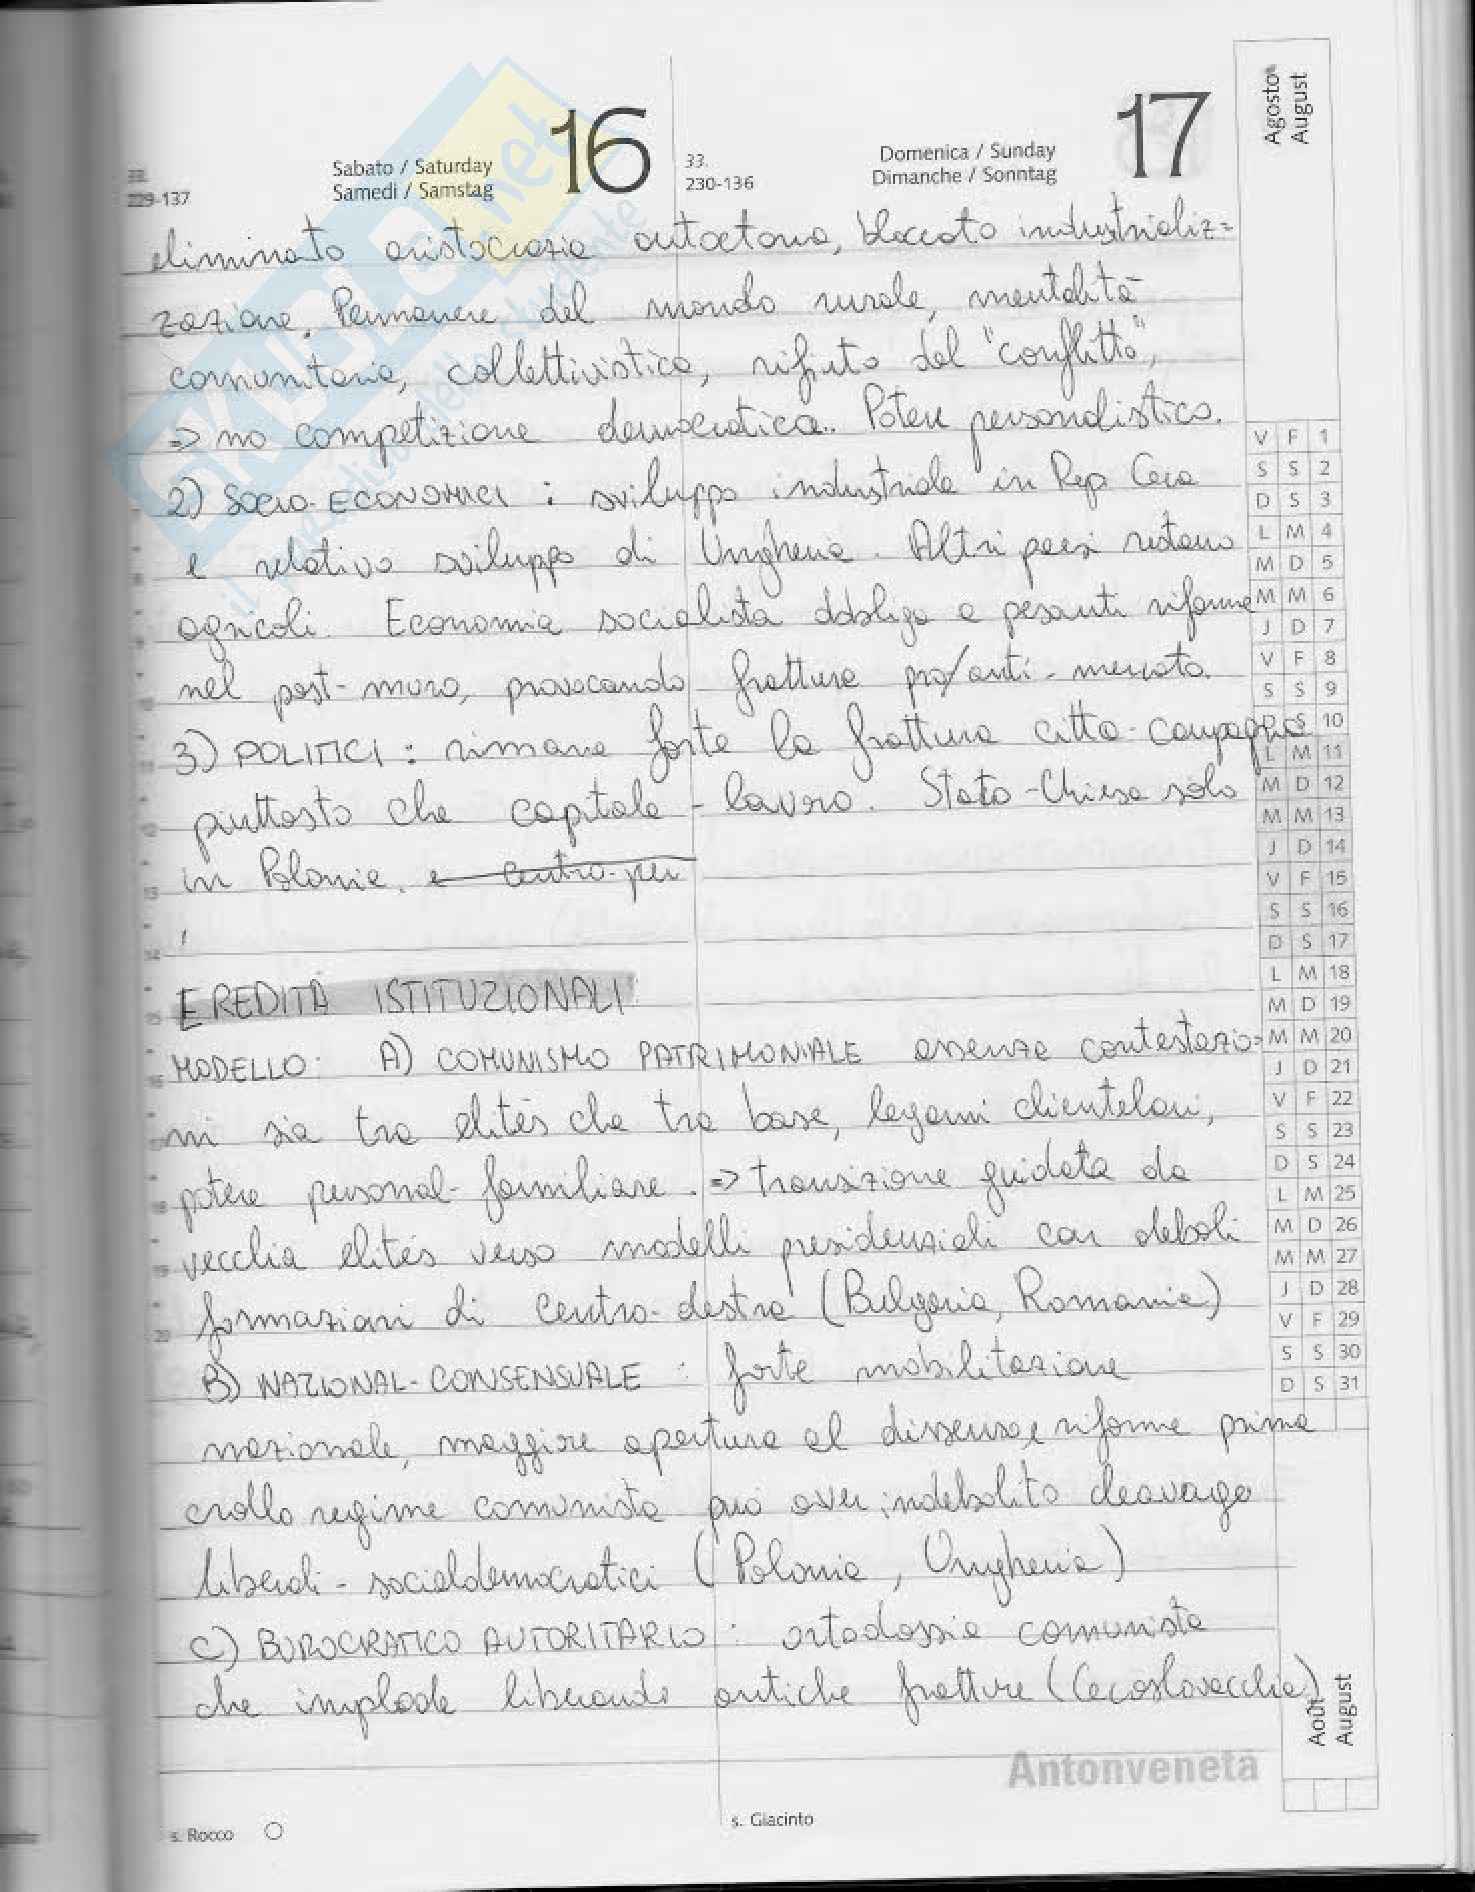 16
17
Sabato / Saturday
Samedi / Samstag
33.
229-137
33.
230-136
Domenica / Sunday
Dimanche / Sonntag
Agosto
August
SKUOLA.net
il paradiso dello studente
eliminato aristocrazia autoctona, bloccato industrializ=
zazione. Permanere del mondo rurale, mentalità
comunitaria, collettivistica, rifiuto del "conflitto",
=> no competizione democratica. Potere personalistico.
2) SOCIO-ECONOMICI : sviluppo industriale in Rep Ceca
e relativo sviluppo di Ungheria. Altri paesi restano
agricoli. Economia socialista obbliga a pesanti riforme
nel post-muro, provocando fratture pro/anti-mercato.
3) POLITICI : rimane forte la frattura città-campagna
piuttosto che capitale-lavoro. Stato-Chiesa solo
in Polonia. e centro-per
EREDITÀ ISTITUZIONALI:
MODELLO: A) COMUNISMO PATRIMONIALE assenza contestazio=
ni sia tra elités che tra base, legami clientelari,
potere personal-familiare. => transizione guidata da
vecchia elités verso modelli presidenziali con deboli
formazioni di centro-destra (Bulgaria, Romania)
B) NAZIONAL-CONSENSUALE : forte mobilitazione
nazionale, maggiore apertura al dissenso e riforme prima
crollo regime comunista può aver indebolito cleavage
liberali-socialdemocratici (Polonia, Ungheria)
C) BUROCRATICO AUTORITARIO : ortodossia comunista
che implode liberando antiche fratture (Cecoslovacchia)
V F 1
S S 2
D S 3
L M 4
M D 5
M M 6
J D 7
V F 8
S S 9
D S 10
L M 11
M D 12
M M 13
J D 14
V F 15
S S 16
D S 17
L M 18
M D 19
M M 20
J D 21
V F 22
S S 23
D S 24
L M 25
M D 26
M M 27
J D 28
V F 29
S S 30
D S 31
Août
August
Antonveneta
s. Rocco
s. Giacinto